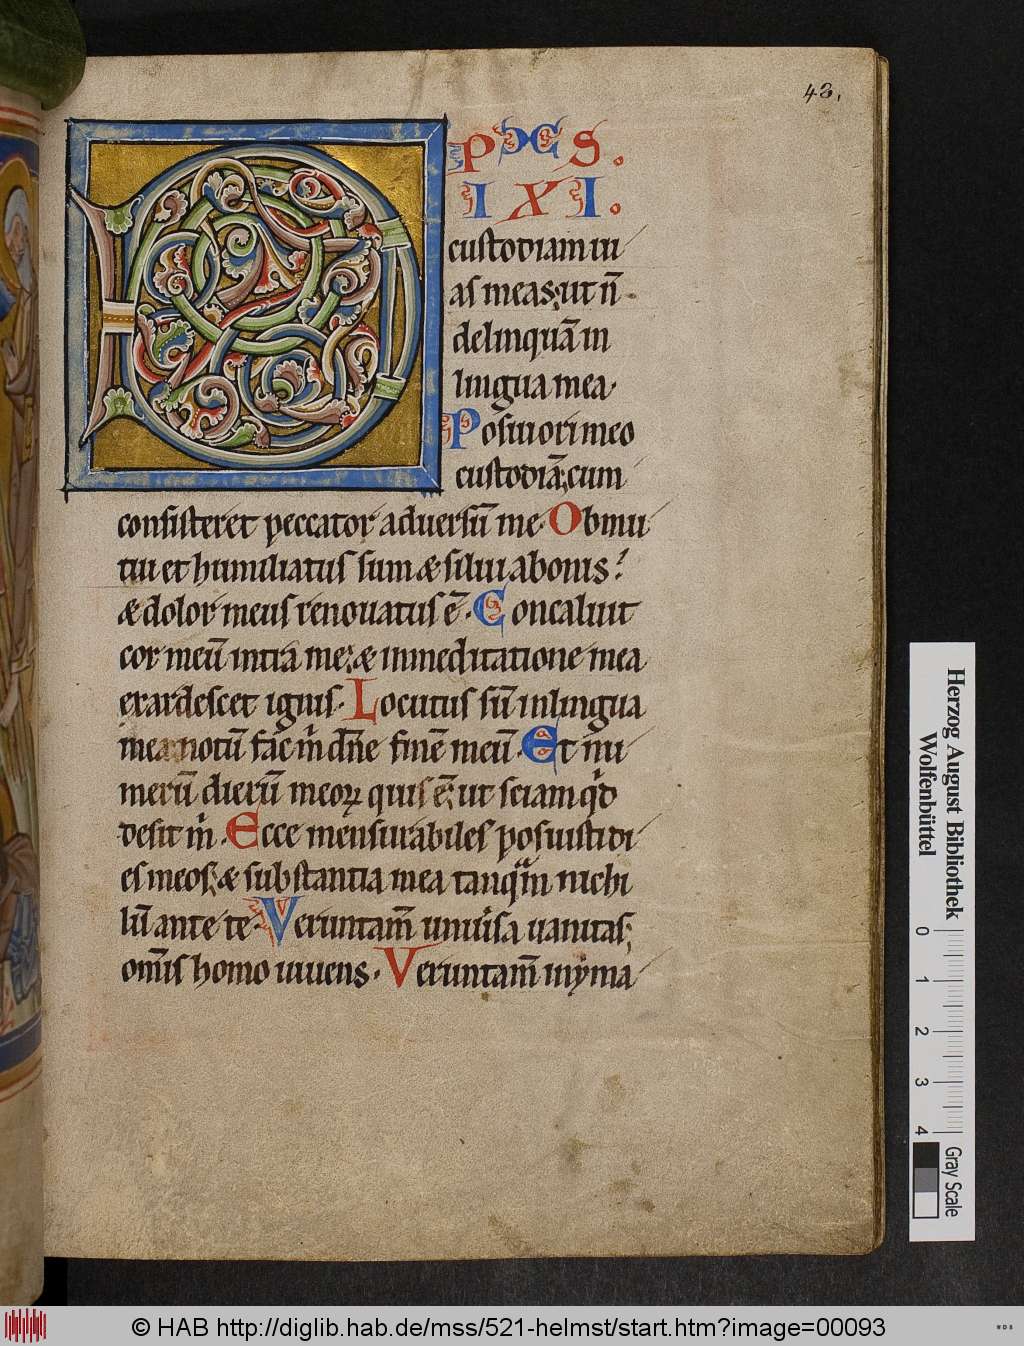 43.
D
IXI.
custodiam ui
as meas; ut n̄
delinquā in
lingua mea.
Posui ori meo
custodiā; cum
consisteret peccator aduersū me. Obmu
tui et humiliatus sum & silui a bonis?
& dolor meus renouatus ē. Concaluit
cor meū intra me; & in meditatione mea
exardescet ignis. Locutus sū in lingua
mea notū fac m̄ dn̄e finē meū. Et nu
merū dierū meoꝝ quis ē; ut sciam qd̄
desit m̄. Ecce mensurabiles posuisti di
es meos; & substantia mea tanquā nichi
lū ante te. Veruntam̄ uniūsa uanitas;
om̄is homo uiuens. Veruntam̄ in yma
Herzog August Bibliothek
Wolfenbüttel
0 1 2 3 4
Gray Scale
© HAB http://diglib.hab.de/mss/521-helmst/start.htm?image=00093